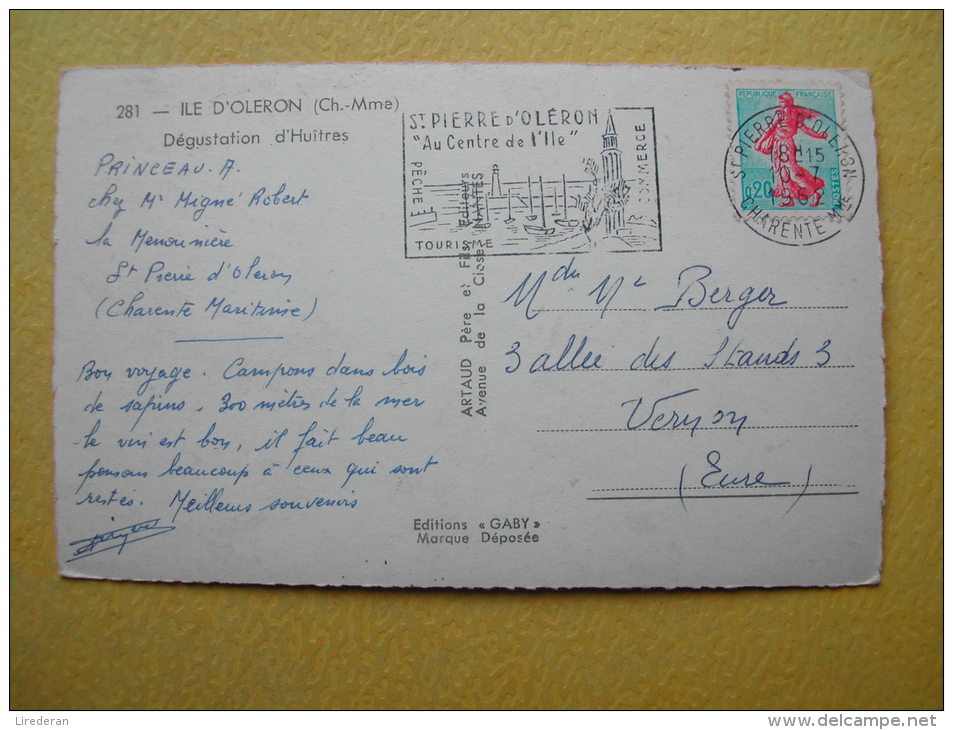 281 — ILE D'OLERON (Ch.-Mme)
Dégustation d'Huîtres
PRINCEAU. A.
chez Mr Migné Robert
la Menounière
St Pierre d'Oleron
(Charente Maritime)
Bon voyage. Campons dans bois
de sapins. 300 mètres de la mer
le vin est bon, il fait beau
pensons beaucoup à ceux qui sont
restés. Meilleurs souvenirs
ST PIERRE D'OLÉRON
"Au Centre de l'Ile"
PÊCHE
COMMERCE
TOURISME
REPUBLIQUE FRANÇAISE
0,20
POSTES
ST PIERRE D'OLERON
18H15
10-7
CHARENTE Mme
ARTAUD Père et Fils, Editeurs
Avenue de la Close, NANTES
Mr Berger
3 allée des Stands 3
Vernon
(Eure)
Editions « GABY »
Marque Déposée
Lirederan
delcampe.net